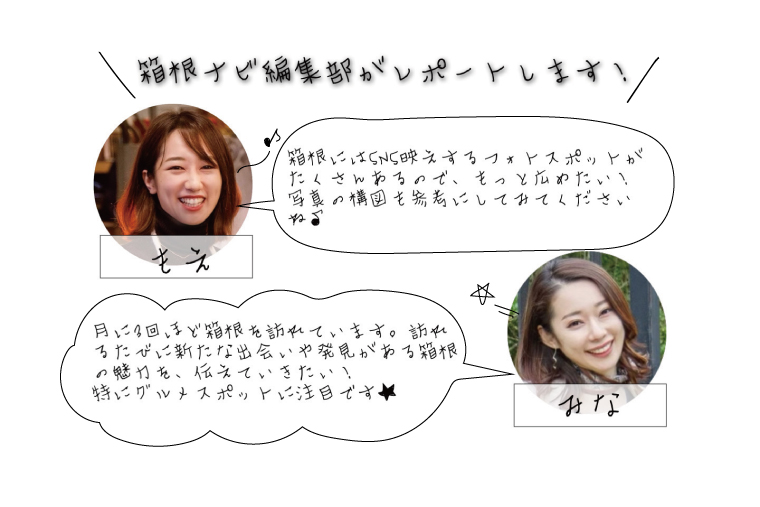 箱根ナビ編集部がレポートします!
箱根にはSNS映えするフォトスポットが
たくさんあるので、もっと広めたい!
写真の構図も参考にしてみてください
ね♪
もえ
月に3回ほど箱根を訪れています。訪れ
るたびに新たな出会いや発見がある箱根
の魅力を、伝えていきたい!
特にグルメスポットに注目です★
みな